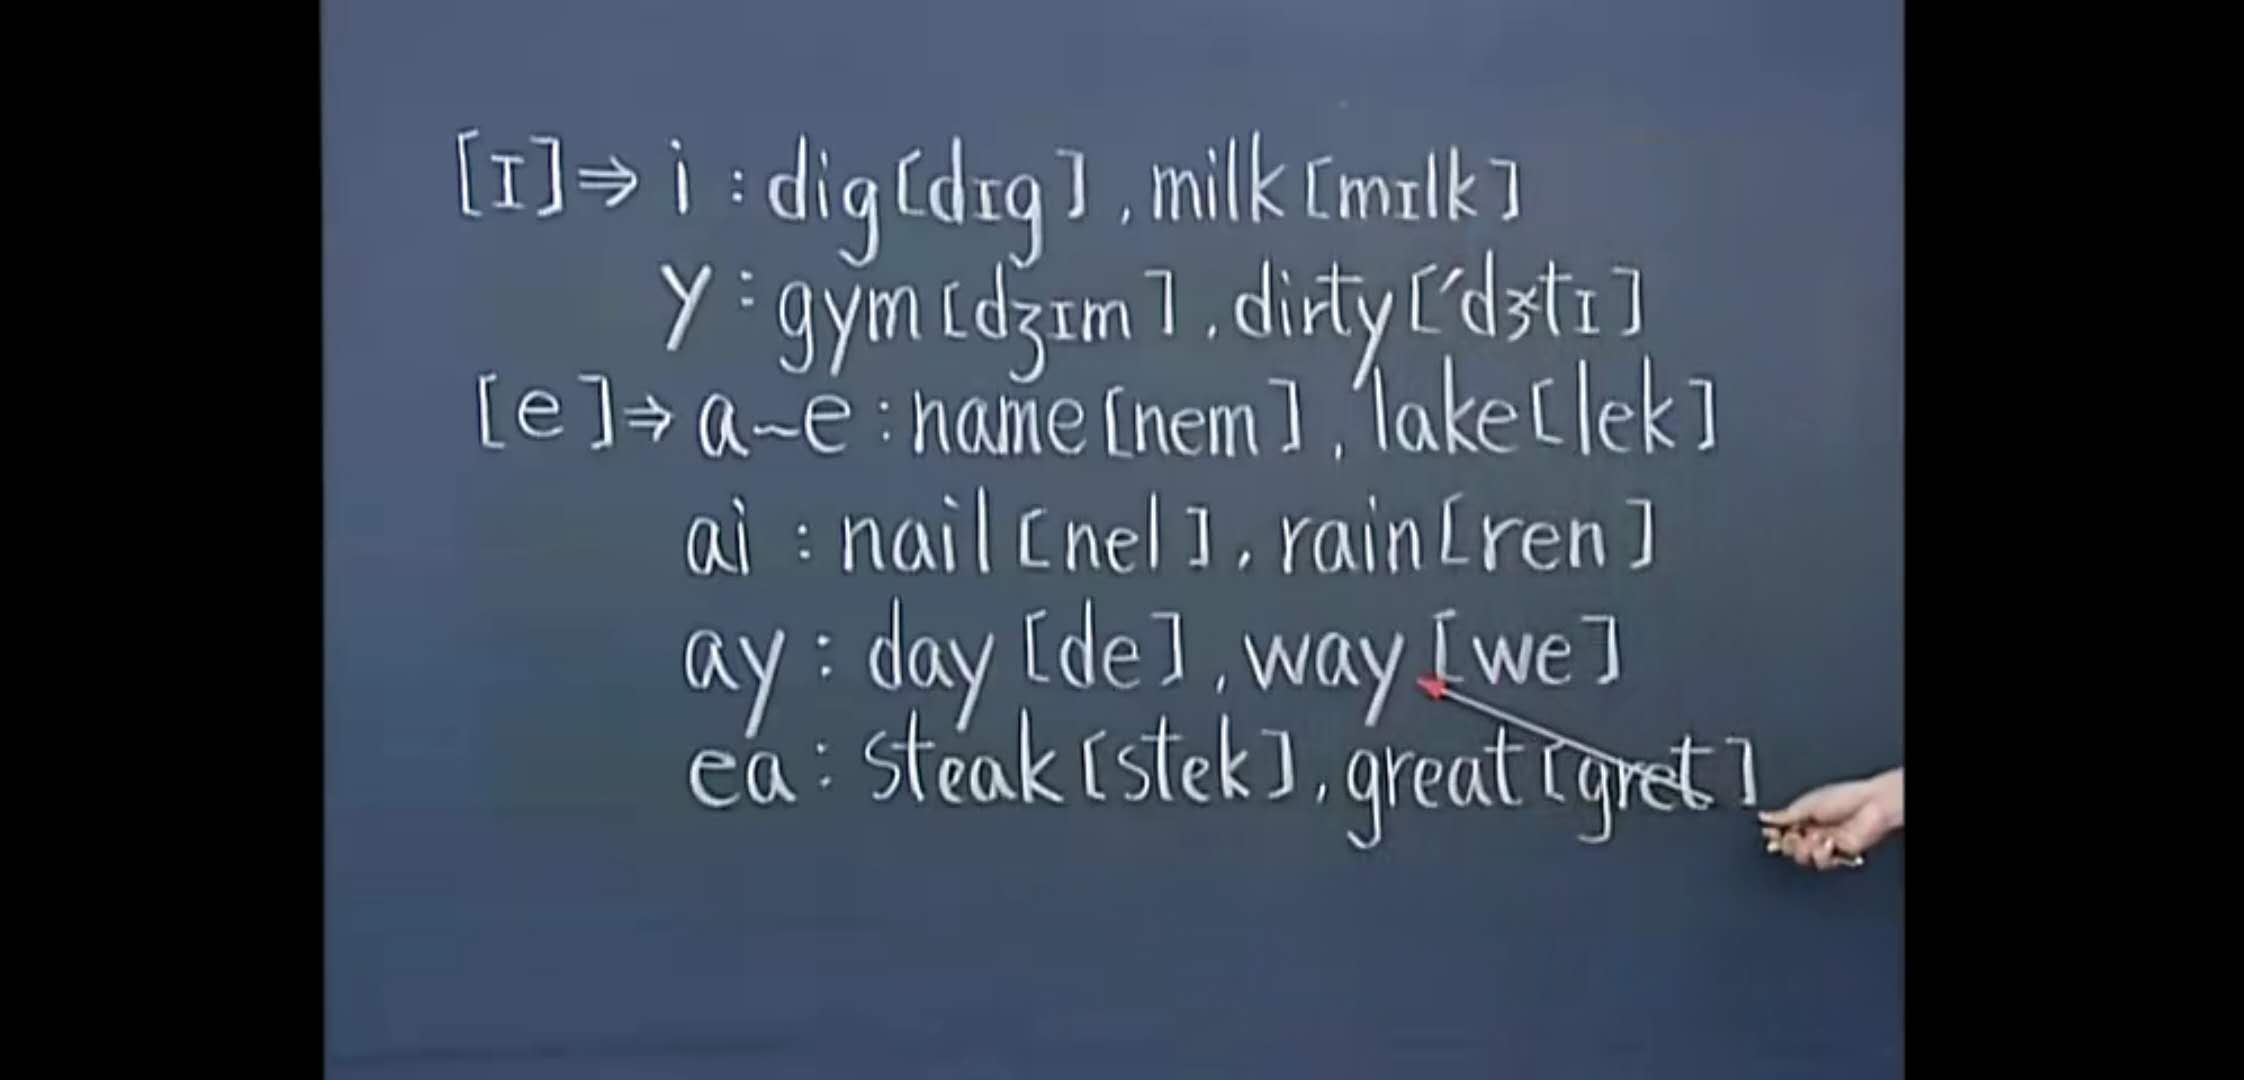 [ɪ]⇒ i : dig[dɪg] , milk[mɪlk]
y : gym[dʒɪm] , dirty[ˊdɝtɪ]
[e]⇒ a~e : name[nem] , lake[lek]
ai : nail[nel] , rain[ren]
ay : day[de] , way[we]
ea : steak[stek] , great[gret]